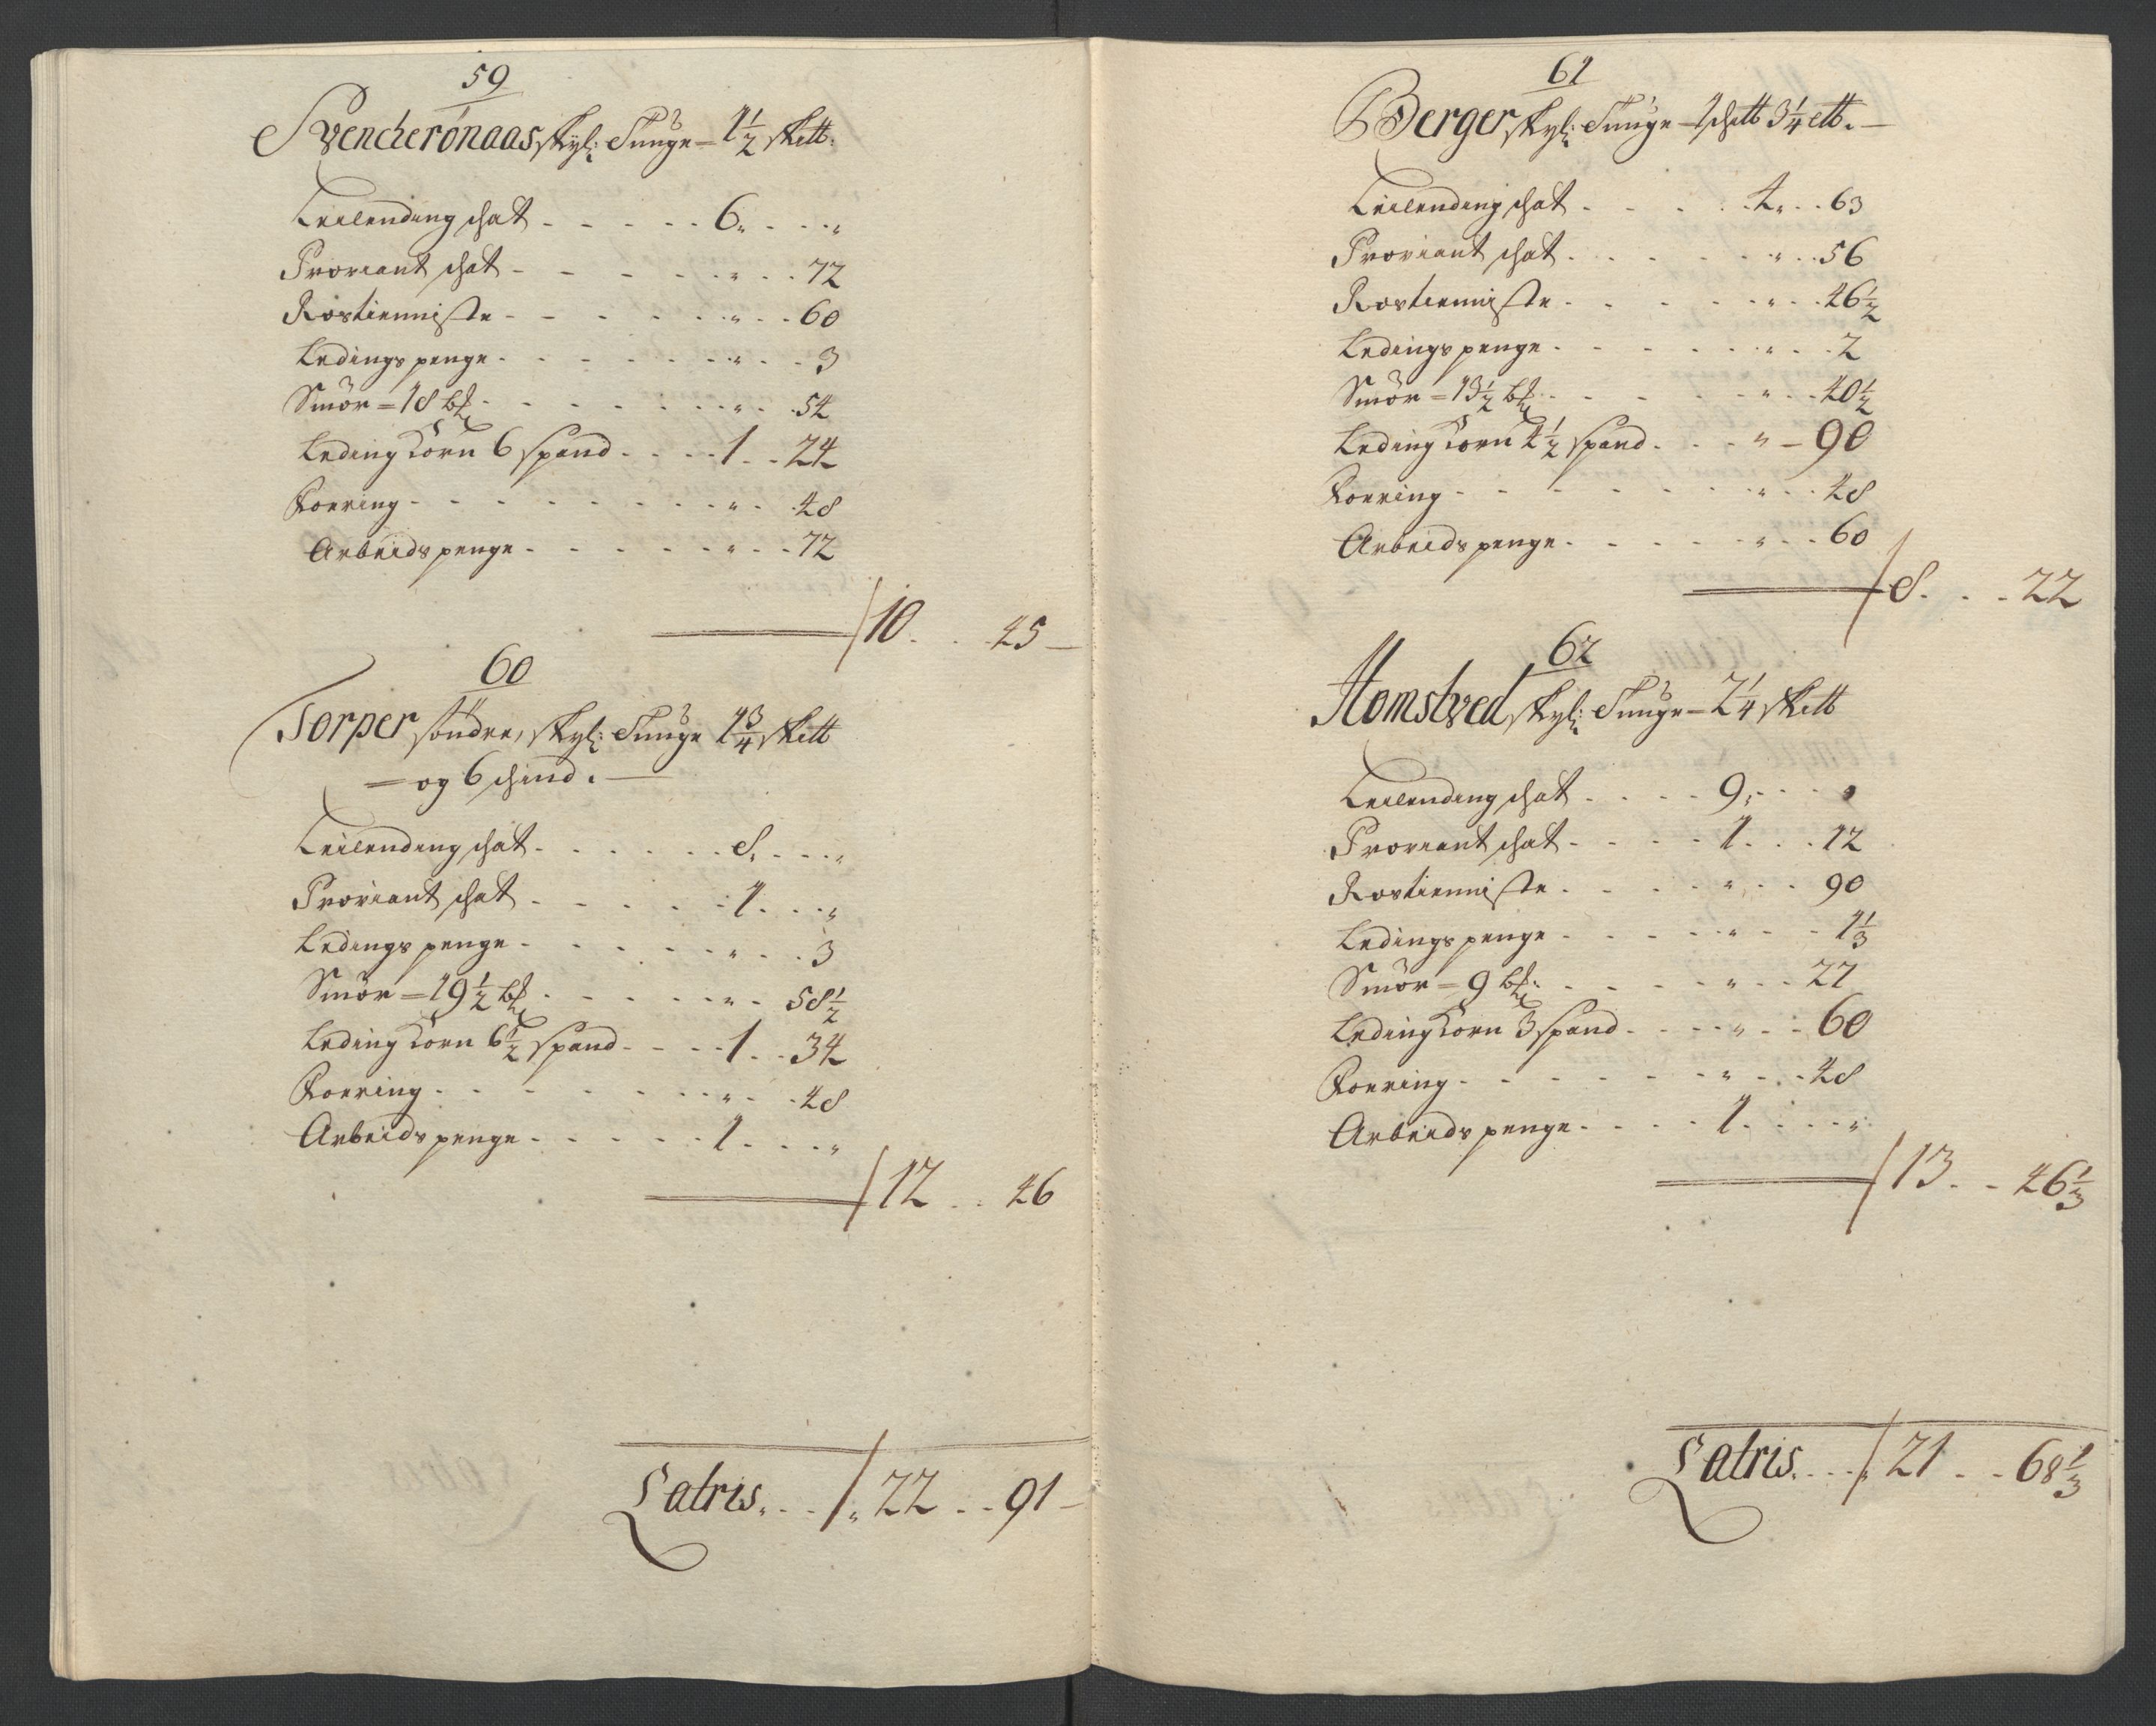 59
Svencherönaas skyl: Tunge = 1½ skett:
Leilending schat - - - - - 6 „ - - - „
Proviant schat - - - - - „ - - 72
Rostienniste - - - - - - „ - - 60
Ledings penge - - - - - - „ - - 3
Smör = 18 bℓ - - - - - - „ - - 54
Leding Korn 6 spand - - - 1 - - 24
Foering - - - - - - - - „ - - 48
Arbeids penge - - - - - - „ - - 72
10 - - 45 -
60
Torper söndre, skyl: Tunge 1¾ skett
= og 6 schind. -
Leilending schat - - - - - 8 „ - - - „
Proviant schat - - - - - 1 - - - „
Ledings penge - - - - - - „ - - 3
Smör = 19½ bℓ - - - - - „ - - 58½
Leding Korn 6½ spand - - - 1 - - 34
Foering - - - - - - - - „ - - 48
Arbeids penge - - - - - 1 - - - „
12 - - 46
Latris „ - - - „ 22 - - 91 -
61
Berger skyl: Tunge - 1 schett 3¼ ett. -
Leilending schat - - - - 4 „ - - 63
Proviant schat - - - - - „ - - 56
Rostienniste - - - - - - „ - - 46½
Ledings penge - - - - - - „ - - 2
Smör = 13½ bℓ - - - - - „ - - 40½
Leding Korn 4½ spand - - - „ - 90
Foering - - - - - - - - „ - - 48
Arbeids penge - - - - - - „ - - 60
8 - - - 22
62
Homstved skyl: Tunge - 2¼ skett
Leilending schat - - - - 9 „ - - - „
Proviant schat - - - - - 1 - - - 12
Rostienniste - - - - - - „ - - 90
Ledings penge - - - - - - „ - - 1⅓
Smör = 9 bℓ - - - - - - „ - - 27
Leding Korn 3 spand - - - „ - - 60
Foering - - - - - - - - „ - - 48
Arbeids penge - - - - 1 - - - - „
13 - - 46⅓
Latris - - - „ 21 - - 68⅓